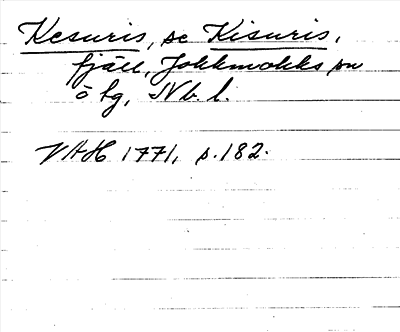 Kesuris, se Kisuris,
fjäll, Jokkmokks sn
o lg, Nb. l.
VAH 1771, s. 182.